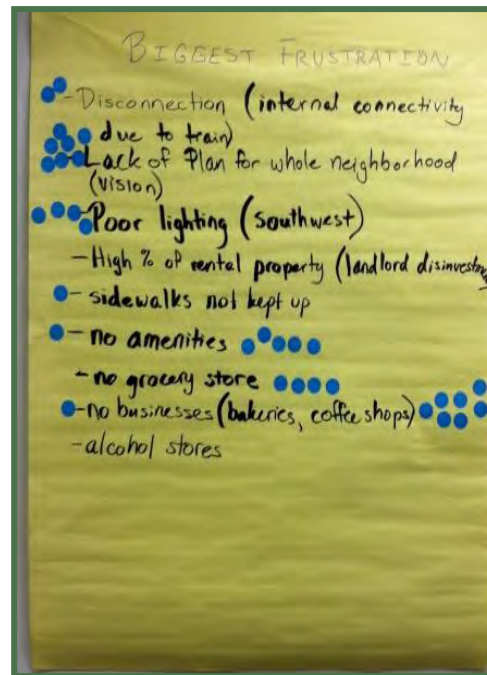 BIGGEST FRUSTRATION
- Disconnection (internal connectivity
due to train)
- Lack of Plan for whole neighborhood
(vision)
- Poor lighting (southwest)
- High % of rental property (landlord disinvestm
- sidewalks not kept up
- no amenities
- no grocery store
- no businesses (bakeries, coffee shops)
- alcohol stores